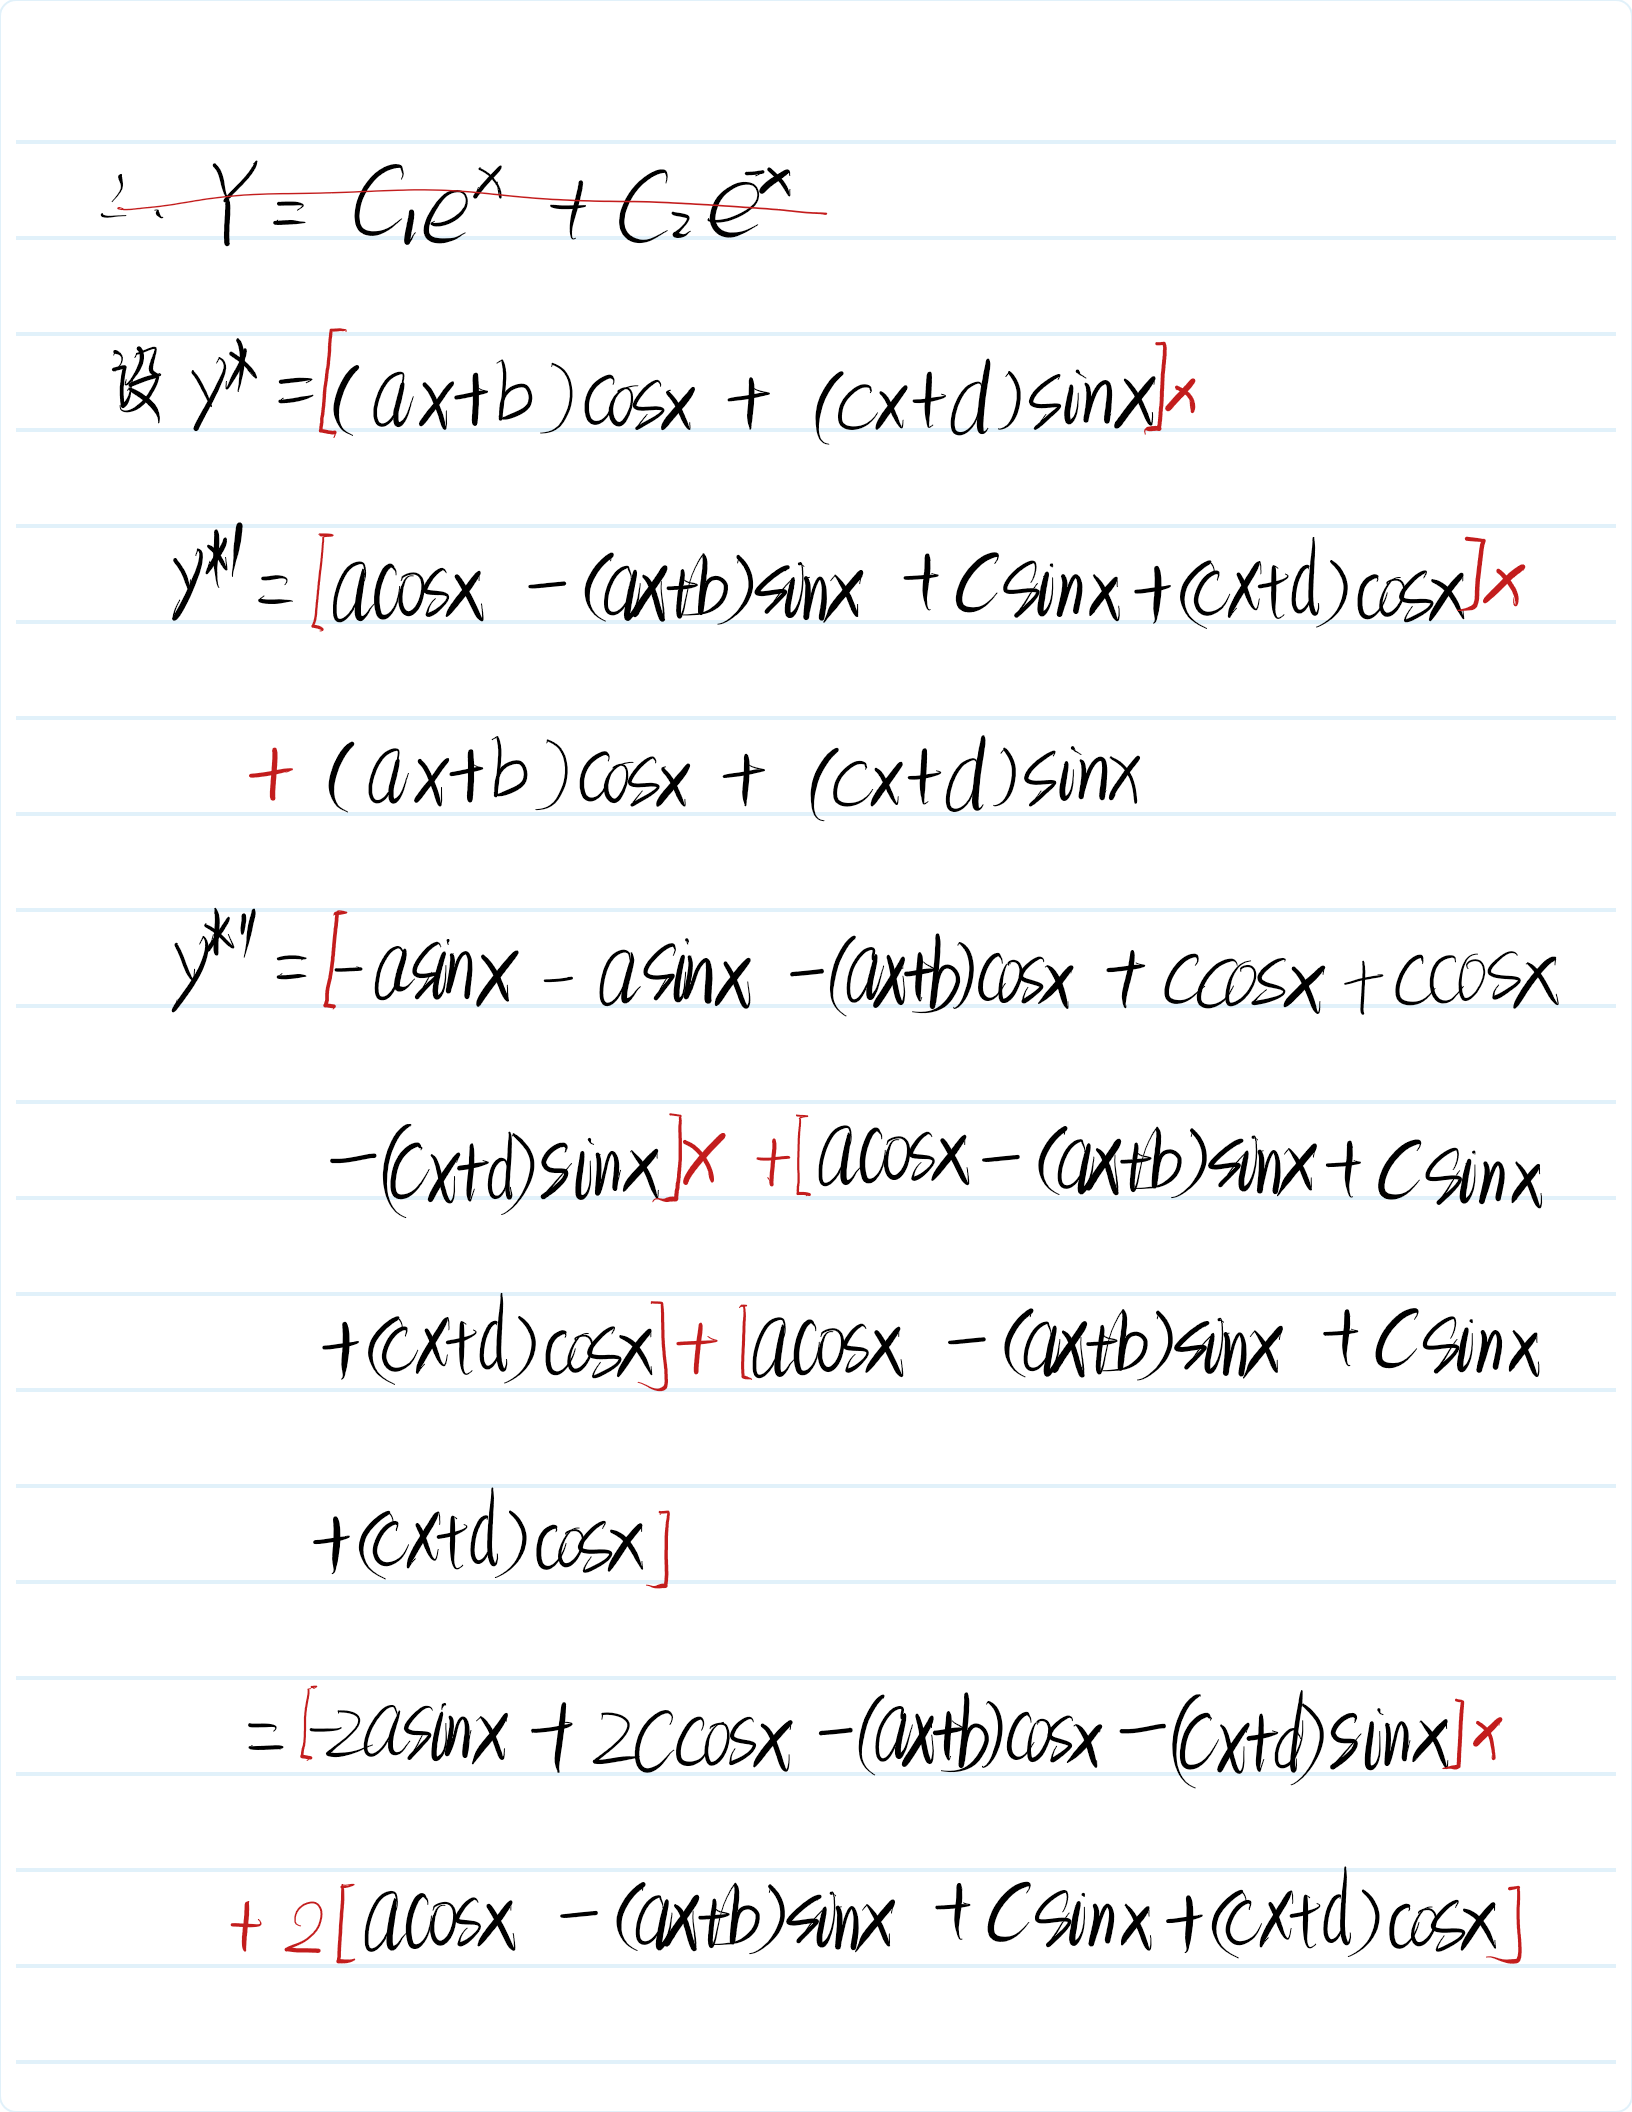 ∴ Y = C₁eˣ + C₂e⁻ˣ
设 y* = [(ax+b)cosx + (cx+d)sinx]x
y*' = [acosx - (ax+b)sinx + csinx + (cx+d)cosx]x
+ (ax+b)cosx + (cx+d)sinx
y*'' = [-asinx - asinx - (ax+b)cosx + ccosx + ccosx
- (cx+d)sinx]x + [acosx - (ax+b)sinx + csinx
+ (cx+d)cosx] + [acosx - (ax+b)sinx + csinx
+ (cx+d)cosx]
= [-2asinx + 2ccosx - (ax+b)cosx - (cx+d)sinx]x
+ 2[acosx - (ax+b)sinx + csinx + (cx+d)cosx]